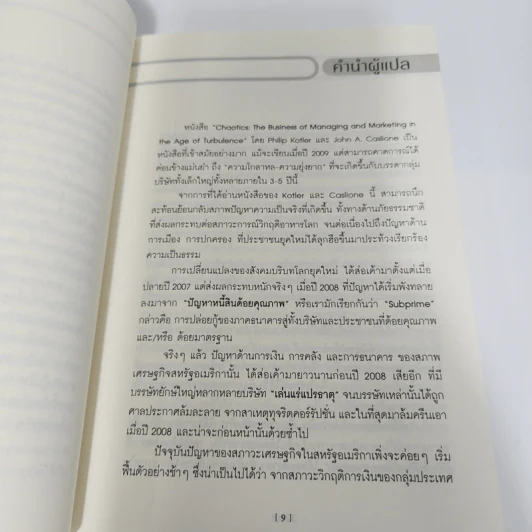 คำนำผู้แปล
หนังสือ "Chaotics: The Business of Managing and Marketing in
the Age of Turbulence" โดย Philip Kotler และ John A. Caslione เป็น
หนังสือที่เข้าสมัยอย่างมาก แม้จะเขียนเมื่อปี 2009 แต่สามารถคาดการณ์ได้
ค่อนข้างแม่นยำ ถึง "ความโกลาหล-ความยุ่งยาก" ที่จะเกิดขึ้นกับบรรดากลุ่ม
บริษัททั้งเล็กใหญ่ทั้งหลายภายใน 3-5 ปีนี้
จากการที่ได้อ่านหนังสือของ Kotler และ Caslione นี้ สามารถนึก
สะท้อนย้อนกลับสภาพปัญหาความเป็นจริงที่เกิดขึ้น ทั้งทางด้านภัยธรรมชาติ
ที่ส่งผลกระทบต่อสภาวะการณ์วิกฤติอาหารโลก จนต่อเนื่องไปถึงปัญหาด้าน
การเมือง การปกครอง ที่ประชาชนยุคใหม่ได้ลุกฮือขึ้นมาประท้วงเรียกร้อง
ความเป็นธรรม
การเปลี่ยนแปลงของสังคมบริบทโลกยุคใหม่ ได้ส่อเค้ามาตั้งแต่เมื่อ
ปลายปี 2007 แต่ส่งผลกระทบหนักจริงๆ เมื่อปี 2008 ที่ปัญหาได้เริ่มพังทลาย
ลงมาจาก "ปัญหาหนี้สินด้อยคุณภาพ" หรือเรามักเรียกกันว่า "Subprime"
กล่าวคือ การปล่อยกู้ของภาคธนาคารสู่ทั้งบริษัทและประชาชนที่ด้อยคุณภาพ
และ/หรือ ด้อยมาตรฐาน
จริงๆ แล้ว ปัญหาด้านการเงิน การคลัง และการธนาคาร ของสภาพ
เศรษฐกิจสหรัฐอเมริกานั้น ได้ส่อเค้ามายาวนานก่อนปี 2008 เสียอีก ที่มี
บรรษัทยักษ์ใหญ่หลากหลายบริษัท "เล่นแร่แปรธาตุ" จนบรรษัทเหล่านั้นได้ถูก
ศาลประกาศล้มละลาย จากสาเหตุทุจริตคอร์รัปชั่น และในที่สุดมาล้มครืนเอา
เมื่อปี 2008 และน่าจะก่อนหน้านั้นด้วยซ้ำไป
ปัจจุบันปัญหาของสภาวะเศรษฐกิจในสหรัฐอเมริกาเพิ่งจะค่อยๆ เริ่ม
ฟื้นตัวอย่างช้าๆ ซึ่งน่าเป็นไปได้ว่า จากสภาวะวิกฤติการเงินของกลุ่มประเทศ
[ 9 ]